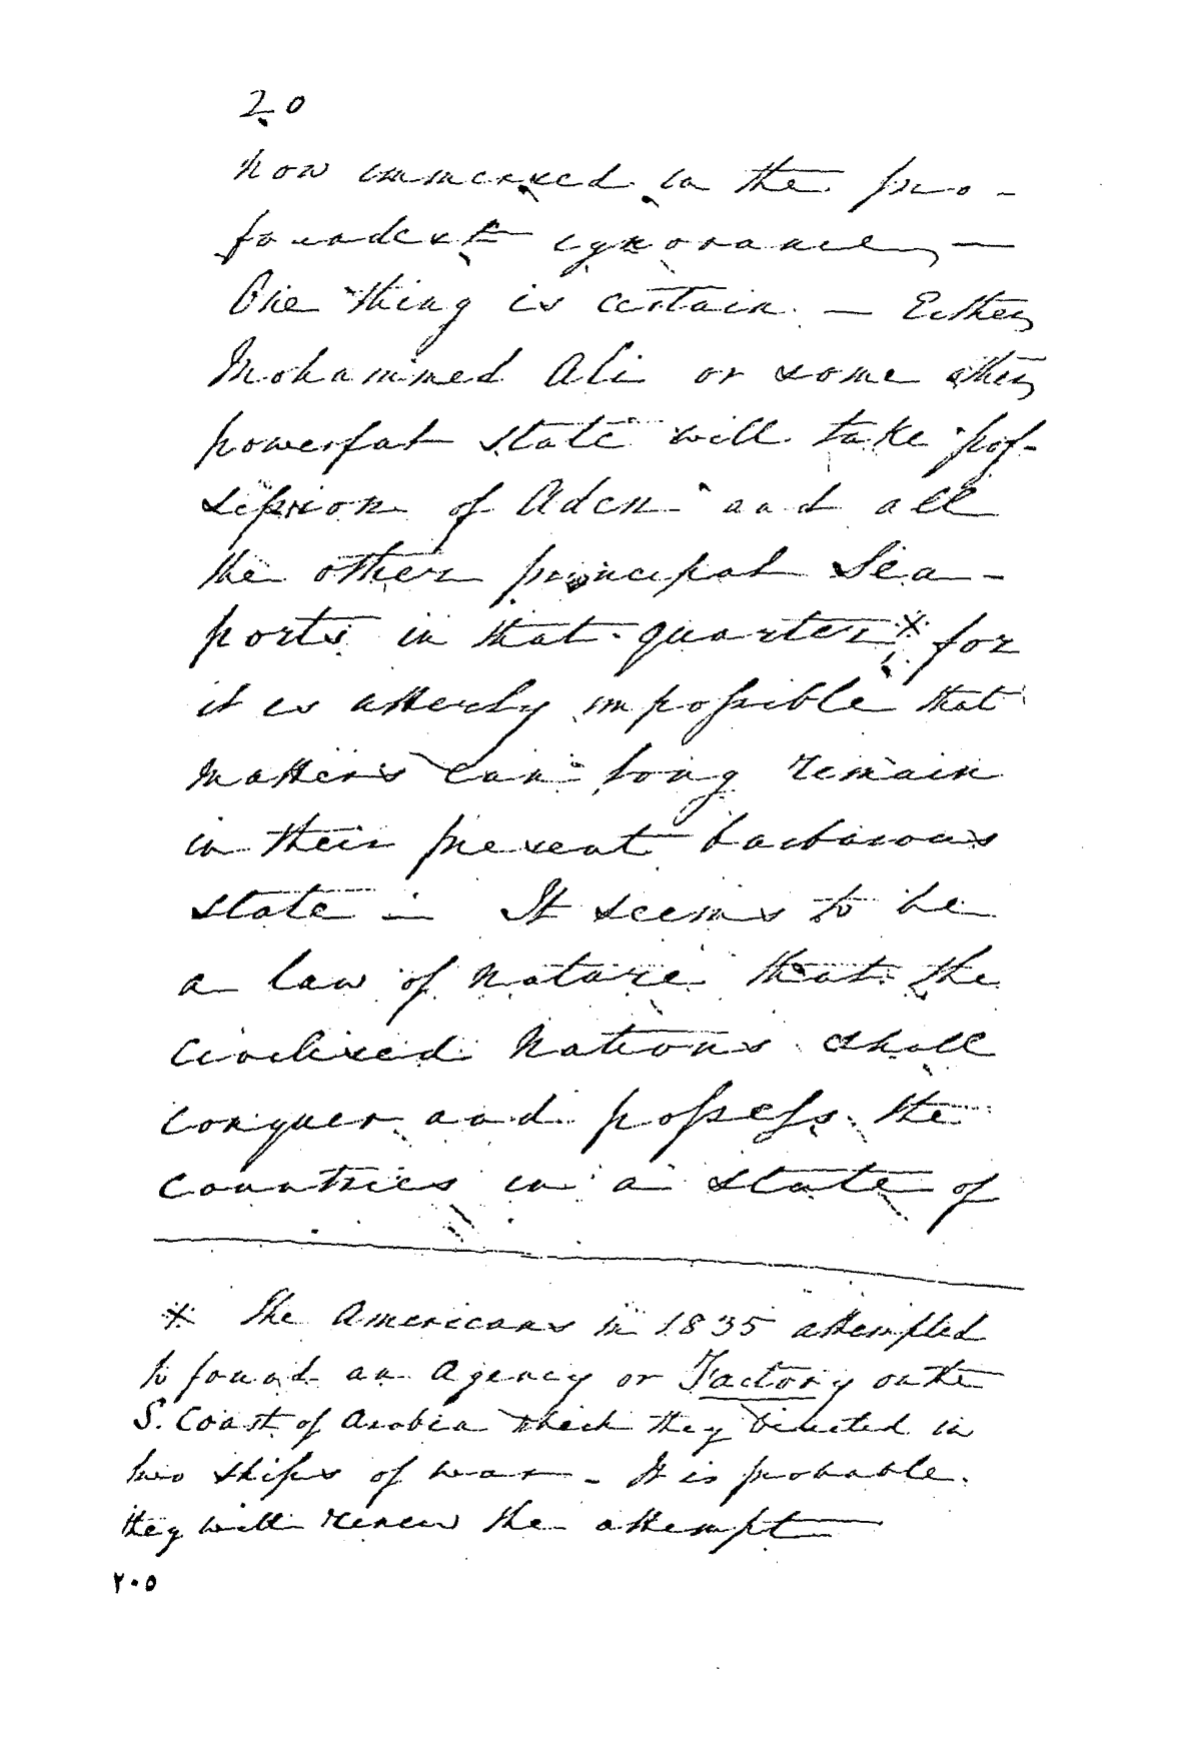 20
now immersed in the pro-
foundest ignorance, —
One thing is certain. — Either
Mohammed Ali or some other
powerful state will take pos-
session of Aden and all
the other principal Sea-
ports in that quarter,* for
it is utterly impossible that
matters can long remain
in their present barbarous
state — It seems to be
a law of nature that the
Civilized Nations shall
conquer and possess the
countries in a state of
* The Americans in 1835 attempted
to found an Agency or Factory on the
S. Coast of Arabia which they visited in
two ships of war — It is probable
they will renew the attempt —
٢٠٥